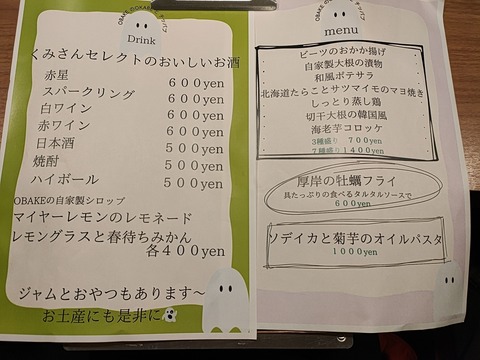 OBAKE
Drink
くみさんセレクトのおいしいお酒
赤星 600yen
スパークリング 600yen
白ワイン 600yen
赤ワイン 600yen
日本酒 500yen
焼酎 500yen
ハイボール 500yen
OBAKEの自家製シロップ
マイヤーレモンのレモネード
レモングラスと春待ちみかん
各400yen
ジャムとおやつもあります〜
お土産にも是非に
menu
ビーツのおかか揚げ
自家製大根の漬物
和風ポテサラ
北海道たらことサツマイモのマヨ焼き
しっとり蒸し鶏
切干大根の韓国風
海老芋コロッケ
3種盛り 700yen
7種盛り 1400yen
厚岸の牡蠣フライ
具たっぷりの食べるタルタルソースで
600yen
ソデイカと菊芋のオイルパスタ
1000yen